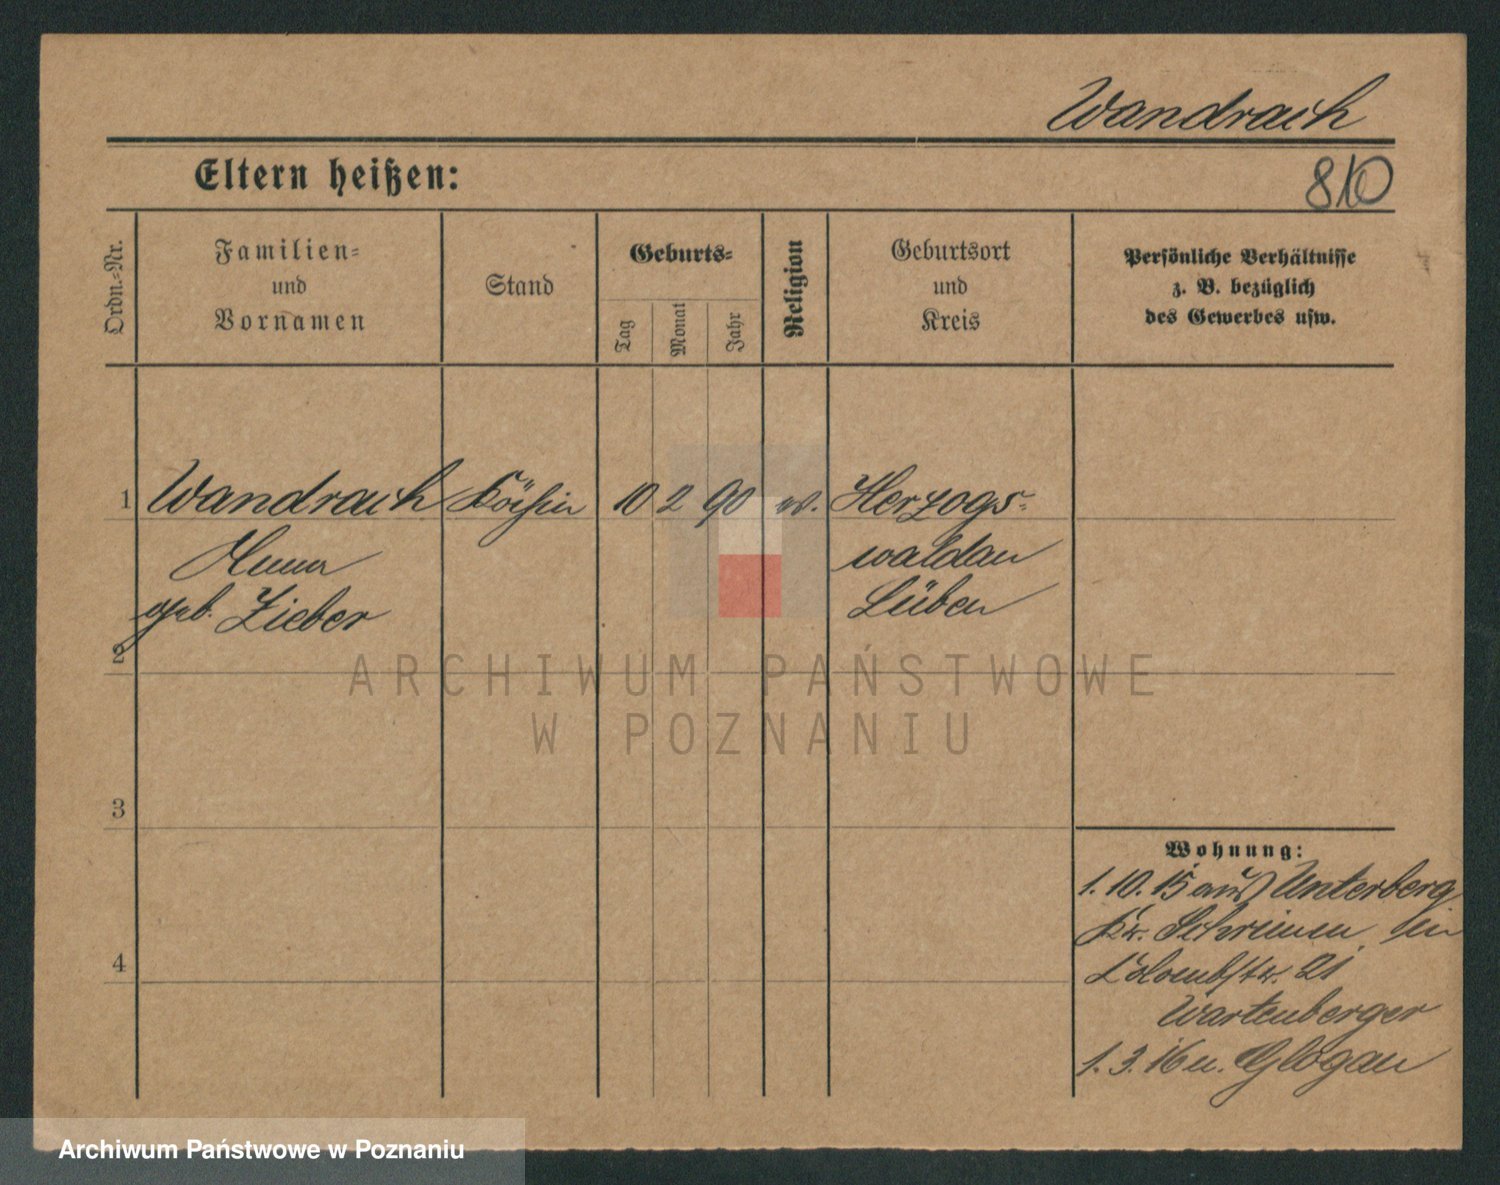 Wandrach
Eltern heißen:
810
Ordn.=Nr.
Familien=
und
Vornamen
Stand
Geburts=
Tag
Monat
Jahr
Religion
Geburtsort
und
Kreis
Persönliche Verhältnisse
z. B. bezüglich
des Gewerbes usw.
1 Wandrach Köchin 10 2 90 ev. Herzogs=
waldau
geb. Zieber Lüben
2
ARCHIWUM PAŃSTWOWE
W POZNANIU
3
Wohnung:
1. 10. 15 aus Unterberg
Kr. Schrimm in
21
4
Wartenberger
1. 3. 16 n. Glogau
Archiwum Państwowe w Poznaniu